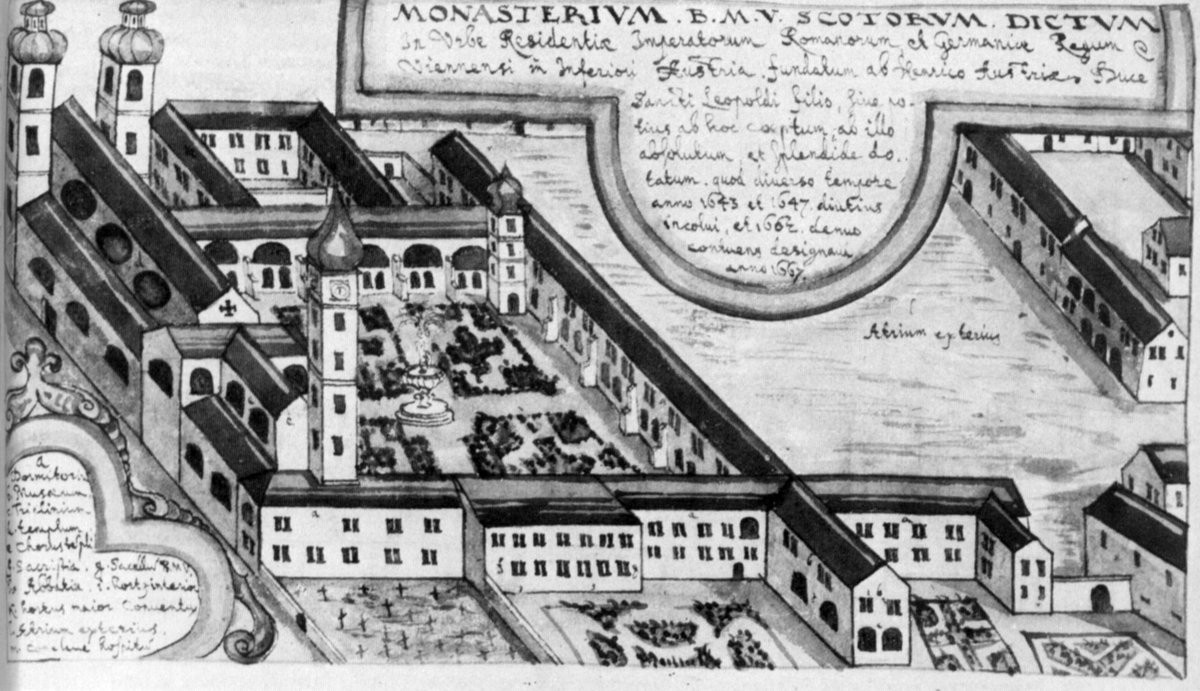 MONASTERIVM . B . M . V . SCOTORVM . DICTVM
In Vrbe Residentiæ Imperatorum Romanorum et Germaniæ Regum
Viennensi in Inferiori Austria . fundatum ab Henrico Austriæ Duce
Sancti Leopoldi filio, sive po-
tius ab hoc cœptum, ab illo
absolutum, et splendide do-
tatum. quod diverso tempore
anno 1643 et 1647. diutius
incolui, et 1662. denuo
conventus designavi
anno 1667.
Atrium exterius
a
Dormitoriu
Musæum
Triclinium
templum
e Chorus
Sacristia, g. Sacellu B.M.V.
Abbatia i. Hort, interior
hortus maior Conventus
Atrium exterius.